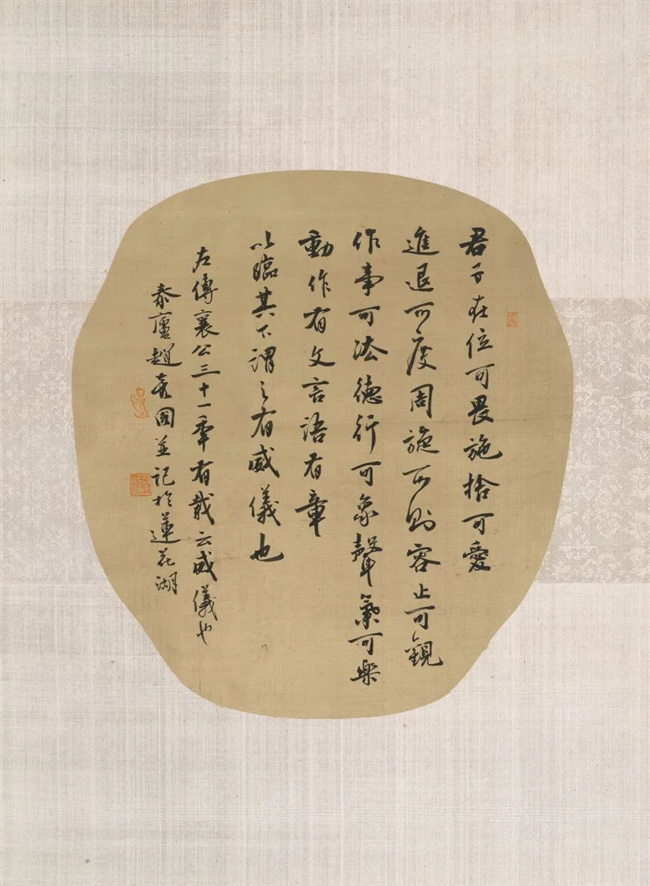 君子在位可畏施捨可愛
進退可度周旋可則容止可觀
作事可法德行可象聲氣可樂
動作有文言語有章
以臨其下謂之有威儀也
左傳襄公三十一年有載云威儀也
趙國並記於蓮花湖